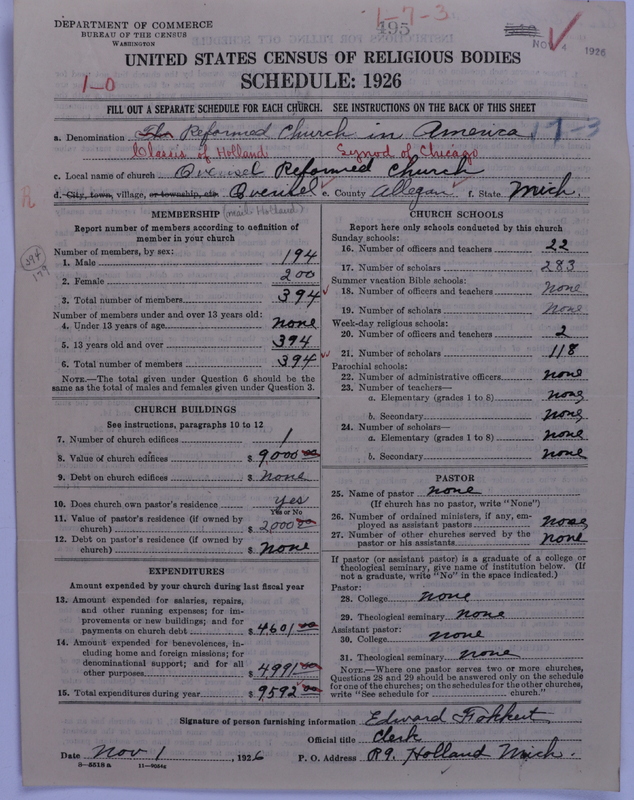 1-7-3
DEPARTMENT OF COMMERCE
BUREAU OF THE CENSUS
WASHINGTON
495
NOV 4 1926
UNITED STATES CENSUS OF RELIGIOUS BODIES
SCHEDULE: 1926
1-0
FILL OUT A SEPARATE SCHEDULE FOR EACH CHURCH. SEE INSTRUCTIONS ON THE BACK OF THIS SHEET
a. Denomination The Reformed Church in America 17-3
Classis of Holland Synod of Chicago
c. Local name of church Overisel Reformed Church
d. City, town, village, or township, etc. Overisel e. County Allegan f. State Mich.
R
MEMBERSHIP (mail Holland)
Report number of members according to definition of
member in your church
394
Number of members, by sex:
1. Male 194
2. Female 200
3. Total number of members 394
Number of members under and over 13 years old:
4. Under 13 years of age none
5. 13 years old and over 394
6. Total number of members 394
NOTE.—The total given under Question 6 should be the
same as the total of males and females given under Question 3.
CHURCH BUILDINGS
See instructions, paragraphs 10 to 12
7. Number of church edifices 1
8. Value of church edifices $ 9,000 00
9. Debt on church edifices $ none
10. Does church own pastor's residence yes
Yes or No
11. Value of pastor's residence (if owned by
church) $ 2000 00
12. Debt on pastor's residence (if owned by
church) $ none
EXPENDITURES
Amount expended by your church during last fiscal year
13. Amount expended for salaries, repairs,
and other running expenses; for im-
provements or new buildings; and for
payments on church debt $ 4601 00
14. Amount expended for benevolences, in-
cluding home and foreign missions; for
denominational support; and for all
other purposes $ 4991 00
15. Total expenditures during year $ 9592 00
CHURCH SCHOOLS
Report here only schools conducted by this church
Sunday schools:
16. Number of officers and teachers 22
17. Number of scholars 283
Summer vacation Bible schools:
18. Number of officers and teachers none
19. Number of scholars none
Week-day religious schools:
20. Number of officers and teachers 2
21. Number of scholars 118
Parochial schools:
22. Number of administrative officers none
23. Number of teachers—
a. Elementary (grades 1 to 8) none
b. Secondary none
24. Number of scholars—
a. Elementary (grades 1 to 8) none
b. Secondary none
PASTOR
25. Name of pastor none
(If church has no pastor, write "None")
26. Number of ordained ministers, if any, em-
ployed as assistant pastors none
27. Number of other churches served by the
pastor or his assistants none
If pastor (or assistant pastor) is a graduate of a college or
theological seminary, give name of institution below. (If
not a graduate, write "No" in the space indicated.)
Pastor:
28. College none
29. Theological seminary none
Assistant pastor:
30. College none
31. Theological seminary none
NOTE.—Where one pastor serves two or more churches,
Questions 28 and 29 should be answered only on the schedule
for one of the churches; on the schedules for the other churches,
write "See schedule for church."
Signature of person furnishing information Edward Fokkert
Official title Clerk
Date Nov 1, 1926 P. O. Address R9. Holland Mich.
8-5518a 11-9054c